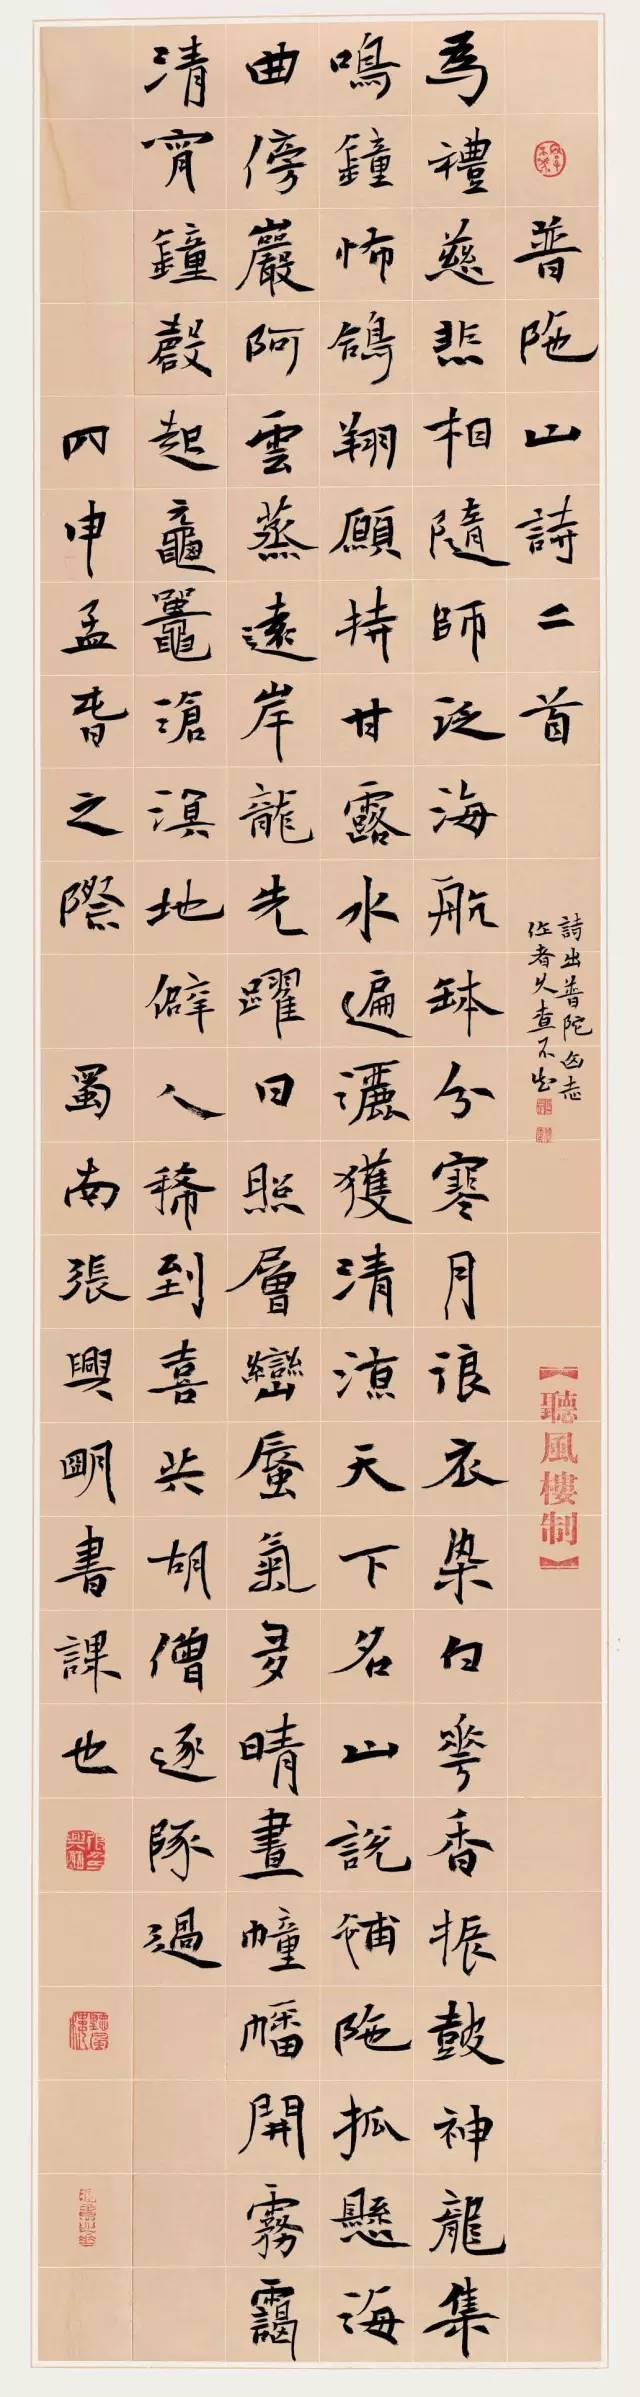 普陁山詩二首
詩出普陀山志
作者久查不出
【聽風樓制】
為禮慈悲相隨師泛海航缽分寒月浪衣染白華香振鼓神龍集
鳴鐘怖鴿翔願持甘露水遍灑獲清涼天下名山說補陁孤懸海
曲傍巖阿雲蒸遠岸龍先躍日照層巒蜃氣多晴晝幢幡開霧靄
清宵鐘磬起黿鼉滄溟地僻人稀到喜共胡僧逐隊過
丙申孟春之際 蜀南張興明書課也